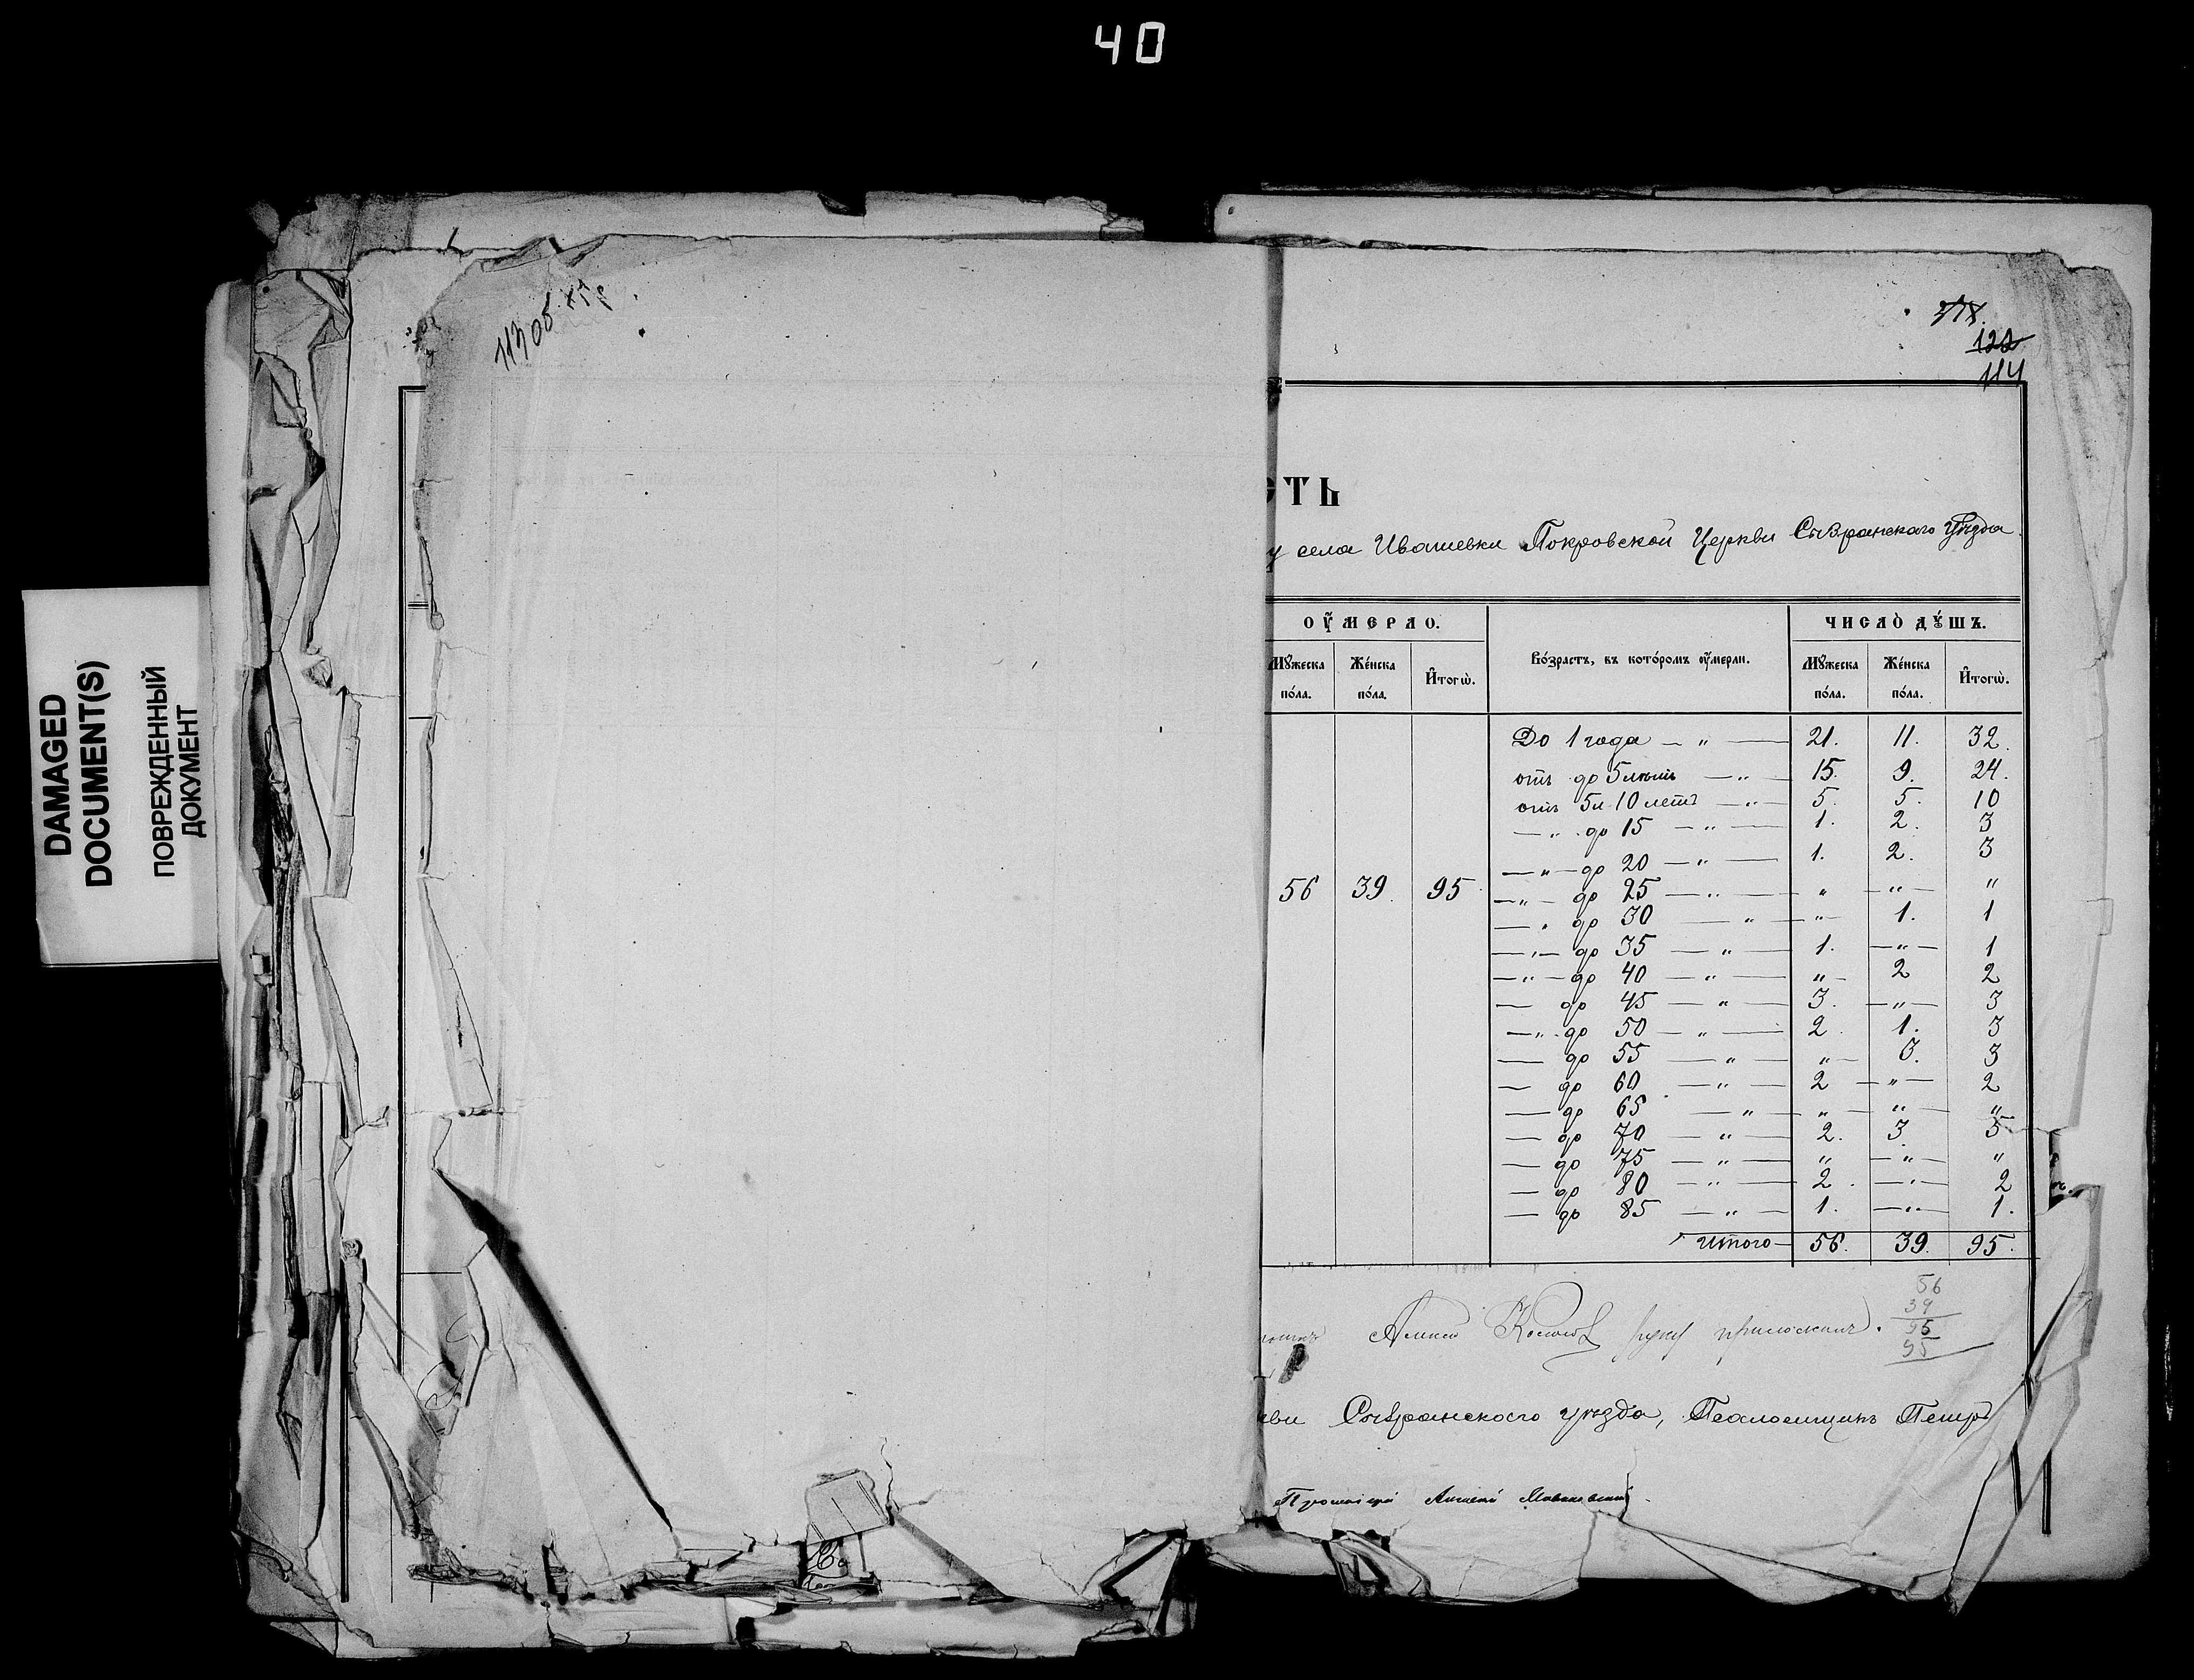 40
DAMAGED
DOCUMENT(S)
ПОВРЕЖДЕННЫЙ
ДОКУМЕНТ
113 об
122
114
СТЬ
у села Ивашевки Покровской Церкви Сызранскаго Уѣзда
ОУМЕРЛО. ЧИСЛО ДУШЪ.
Мужеска пола. Женска пола. Итого. Возрастъ, въ которомъ оумерли. Мужеска пола. Женска пола. Итого.
До 1 года — „ — 21. 11. 32.
отъ до 5 лѣтъ — „ — 15. 9. 24.
отъ 5 и 10 летъ — „ — 5. 5. 10
— „ до 15 — „ — 1. 2. 3
— „ — до 20 — „ — 1. 2. 3
56 39. 95
— „ — до 25 — „ — „ — „ — „
— „ до 30 — „ — „ — 1. 1
— „ — до 35 — „ — 1. — „ — 1
— „ — до 40 — „ — „ — 2 2
— до 45 — „ — 3. — „ — 3
— „ до 50 — „ — 2. 1. 3
— до 55 — „ — „ — 3. 3
— до 60 — „ — 2 — „ — 2
— до 65 — „ — „ — „ — „
— до 70 — „ — 2. 3. 5
— до 75 — „ — „ — „ — „
— до 80 — „ — 2. — „ — 2
— до 85 — „ — 1. — „ — 1.
Итого — 56. 39. 95.
56
39
95
95
руку приложилъ.
кви Сызранскаго уѣзда, Псаломщикъ Петръ